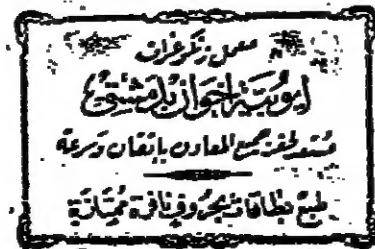 معمل زنكوغراف
بدمشق
مستعد لحفر جميع المعادن باتقان وسرعة
طبع بطاقات بحروف نافرة ممتازة